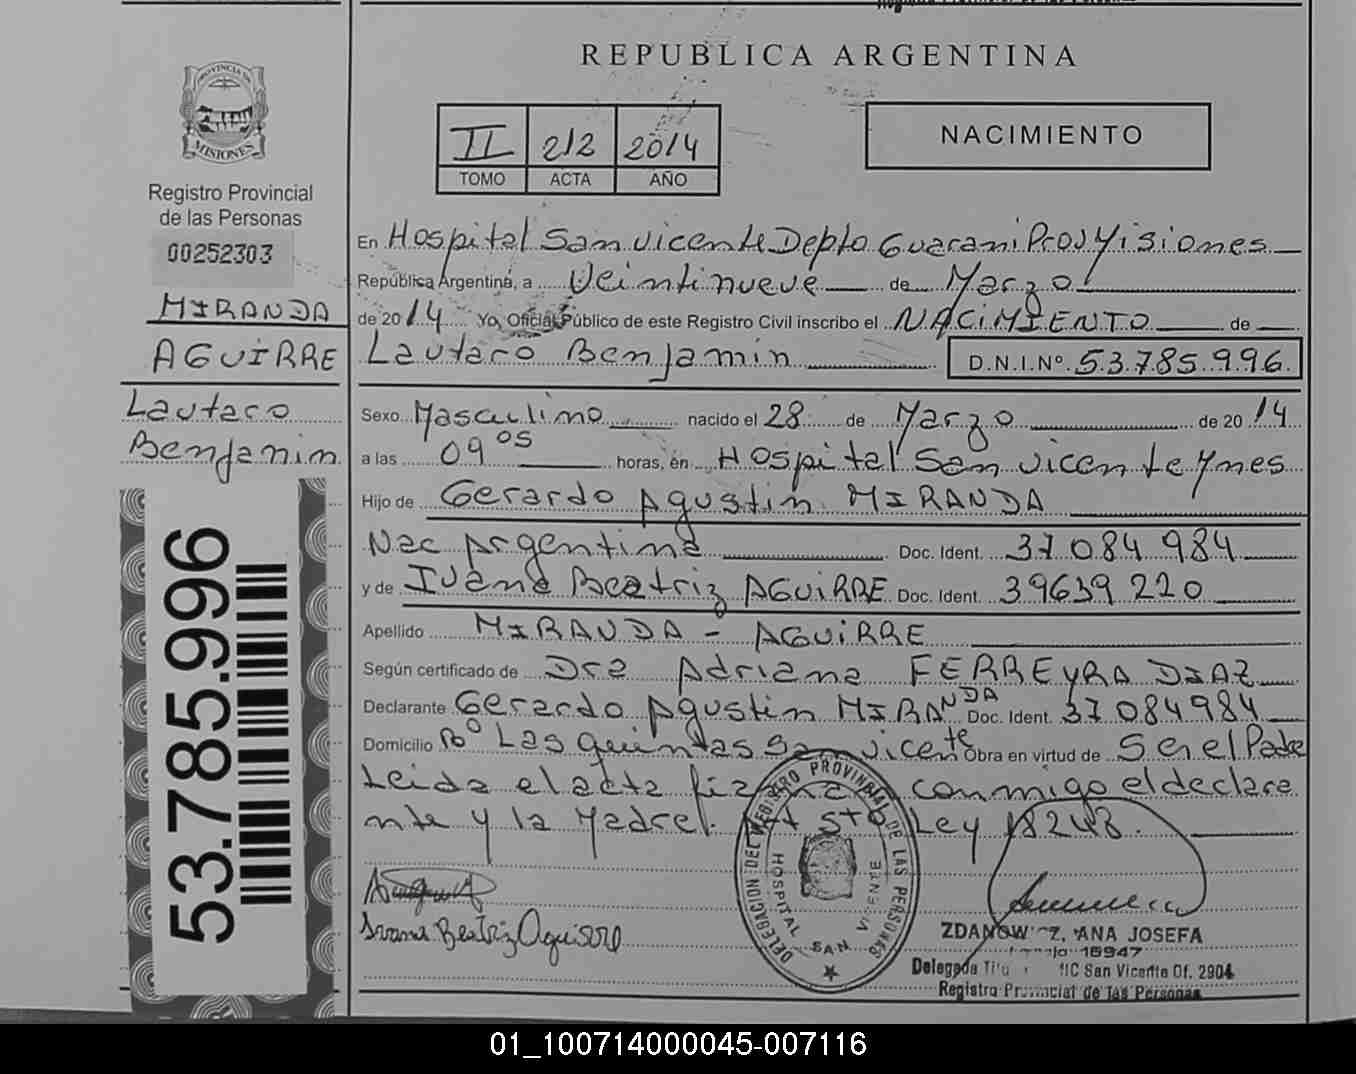 REPUBLICA ARGENTINA
PROVINCIA DE
MISIONES
Registro Provincial
de las Personas
00252303
MIRANDA
AGUIRRE
Lautaro
Benjamin
53.785.996
II 212 2014
TOMO ACTA AÑO
NACIMIENTO
En Hospital San Vicente Depto Guarani Prov Misiones
República Argentina, a Veintinueve de Marzo
de 2014 Yo, Oficial Público de este Registro Civil inscribo el NACIMIENTO de
Lautaro Benjamin D.N.I.Nº 53.785.996
Sexo Masculino nacido el 28 de Marzo de 2014
a las 09 05 horas, en Hospital San Vicente Mnes
Hijo de Gerardo Agustin MIRANDA
Nac Argentina Doc. Ident. 37 084 984
y de Ivana Beatriz AGUIRRE Doc. Ident. 39639 220
Apellido MIRANDA - AGUIRRE
Según certificado de Dra Adriana FERREYRA DIAZ
Declarante Gerardo Agustin MIRANDA Doc. Ident. 37 084984
Domicilio Bº Las quintas San Vicente Obra en virtud de Ser el Padre
Leida el acta conmigo el declara
nte y la Madre. Ley 18248.
Ivana Beatriz Aguirre
DELEGACION DEL REGISTRO PROVINCIAL DE LAS PERSONAS
HOSPITAL SAN VICENTE
ANA JOSEFA
16947
Delegada RC San Vicente Of. 2904
Registro Provincial de las Personas
01_100714000045-007116